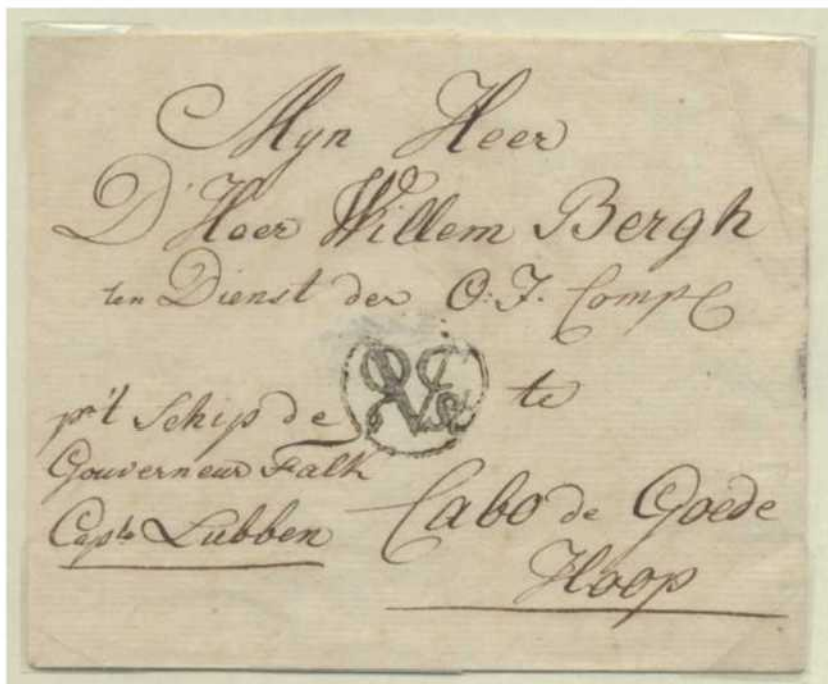 Myn Heer
D'Heer Willem Bergh
ten Dienst der O: I. Comp
te
pr 't Schip de
Gouverneur Falk
Capt Lubben
Cabo de Goede
Hoop